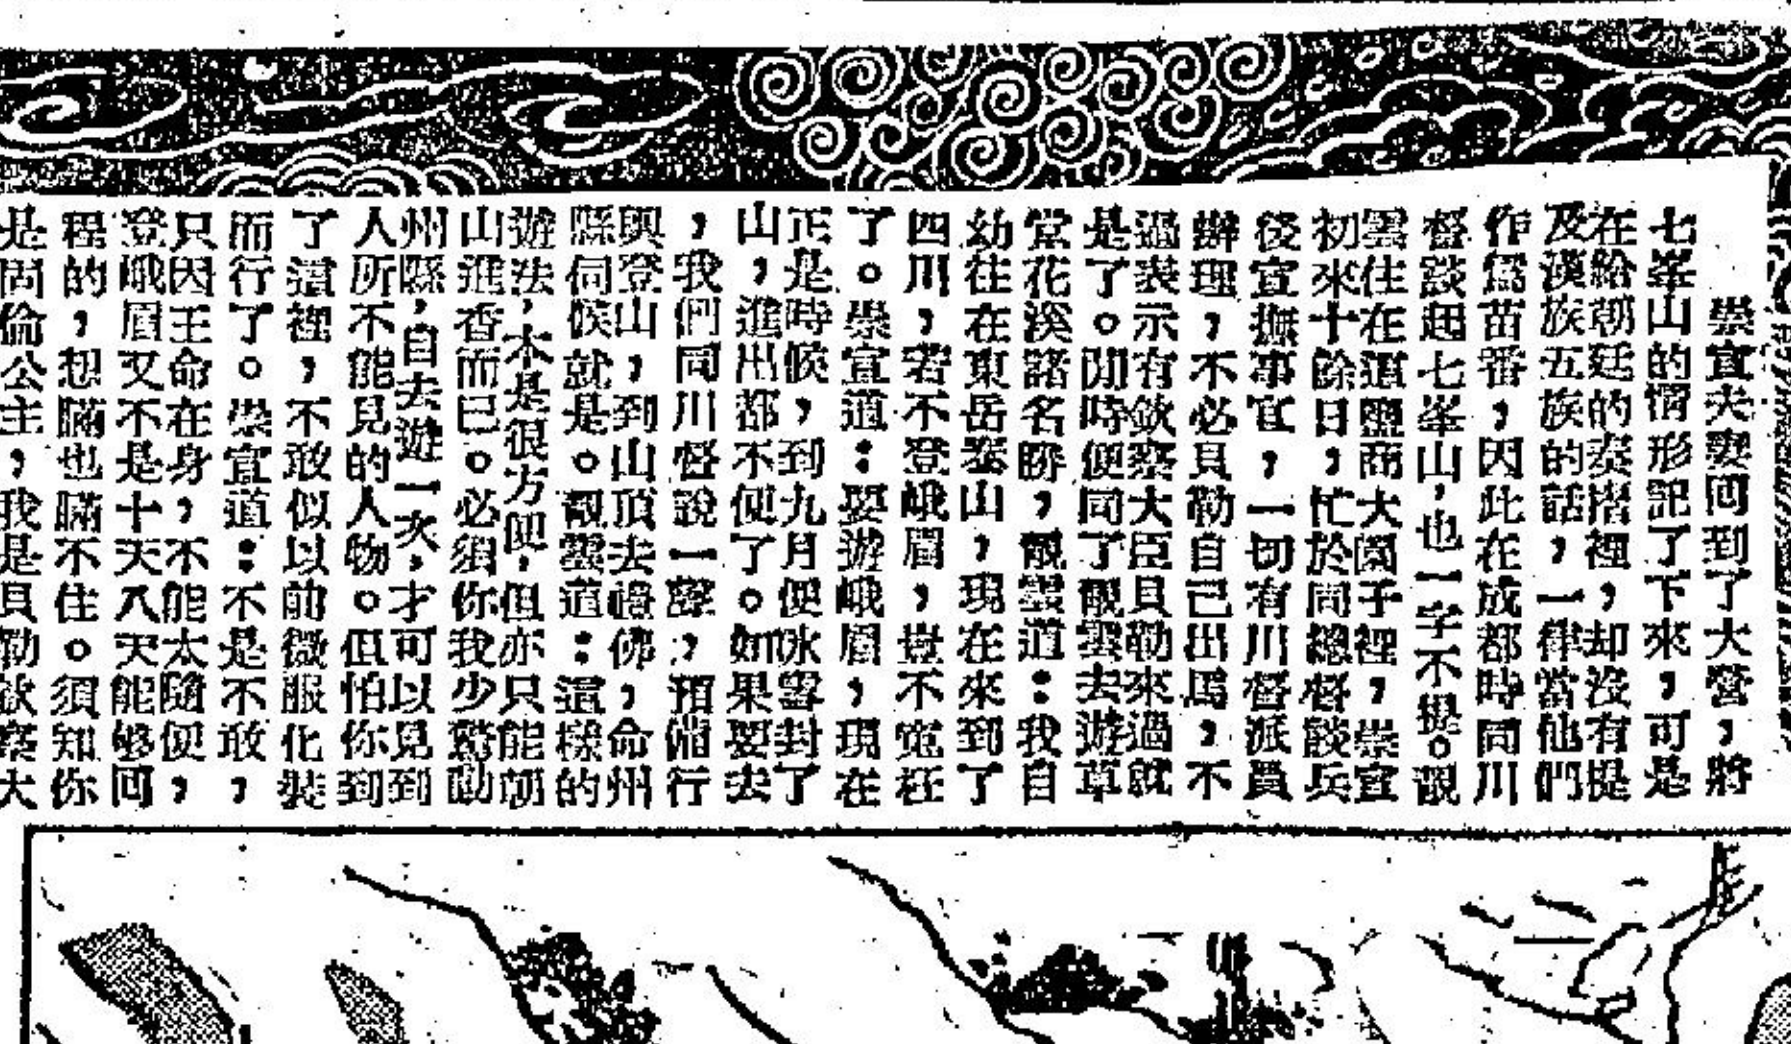 崇宣夫妻回到了大營，將
七峯山的情形記了下來，可是
在給朝廷的奏摺裡，却沒有提
及漢族五族的話，一律當他們
作爲苗番，因此在成都時同川
督談起七峯山，也一字不提。觀
雲住在這鹽商大園子裡，崇宣
初來十餘日，忙於同總督談兵
後宣撫事官，一切有川督派員
辦理，不必貝勒自己出馬，不
過表示有欽察大臣貝勒來過就
是了。閒時便同了觀雲去遊草
堂花溪諸名勝，觀雲道：我自
幼往在東岳泰山，現在來到了
四川，若不登峨眉，豈不寃枉
了。崇宣道：要遊峨眉，現在
正是時候，到九月便冰雪封了
山，進出都不便了。如果要去
，我們同川督說一聲，預備行
興登山，到山頂去禮佛，命州
縣伺候就是。觀雲道：這樣的
遊法，本是很方便，但亦只能朝
山進香而已。必須你我少驚動
州縣，自去遊一次，才可以見到
人所不能見的人物。但怕你到
了這裡，不敢似以前微服化裝
而行了。崇宣道：不是不敢，
只因王命在身，不能太隨便，
登峨眉又不是十天八天能够回
程的，想瞞也瞞不住。須知你
是固倫公主，我是貝勒欽察大